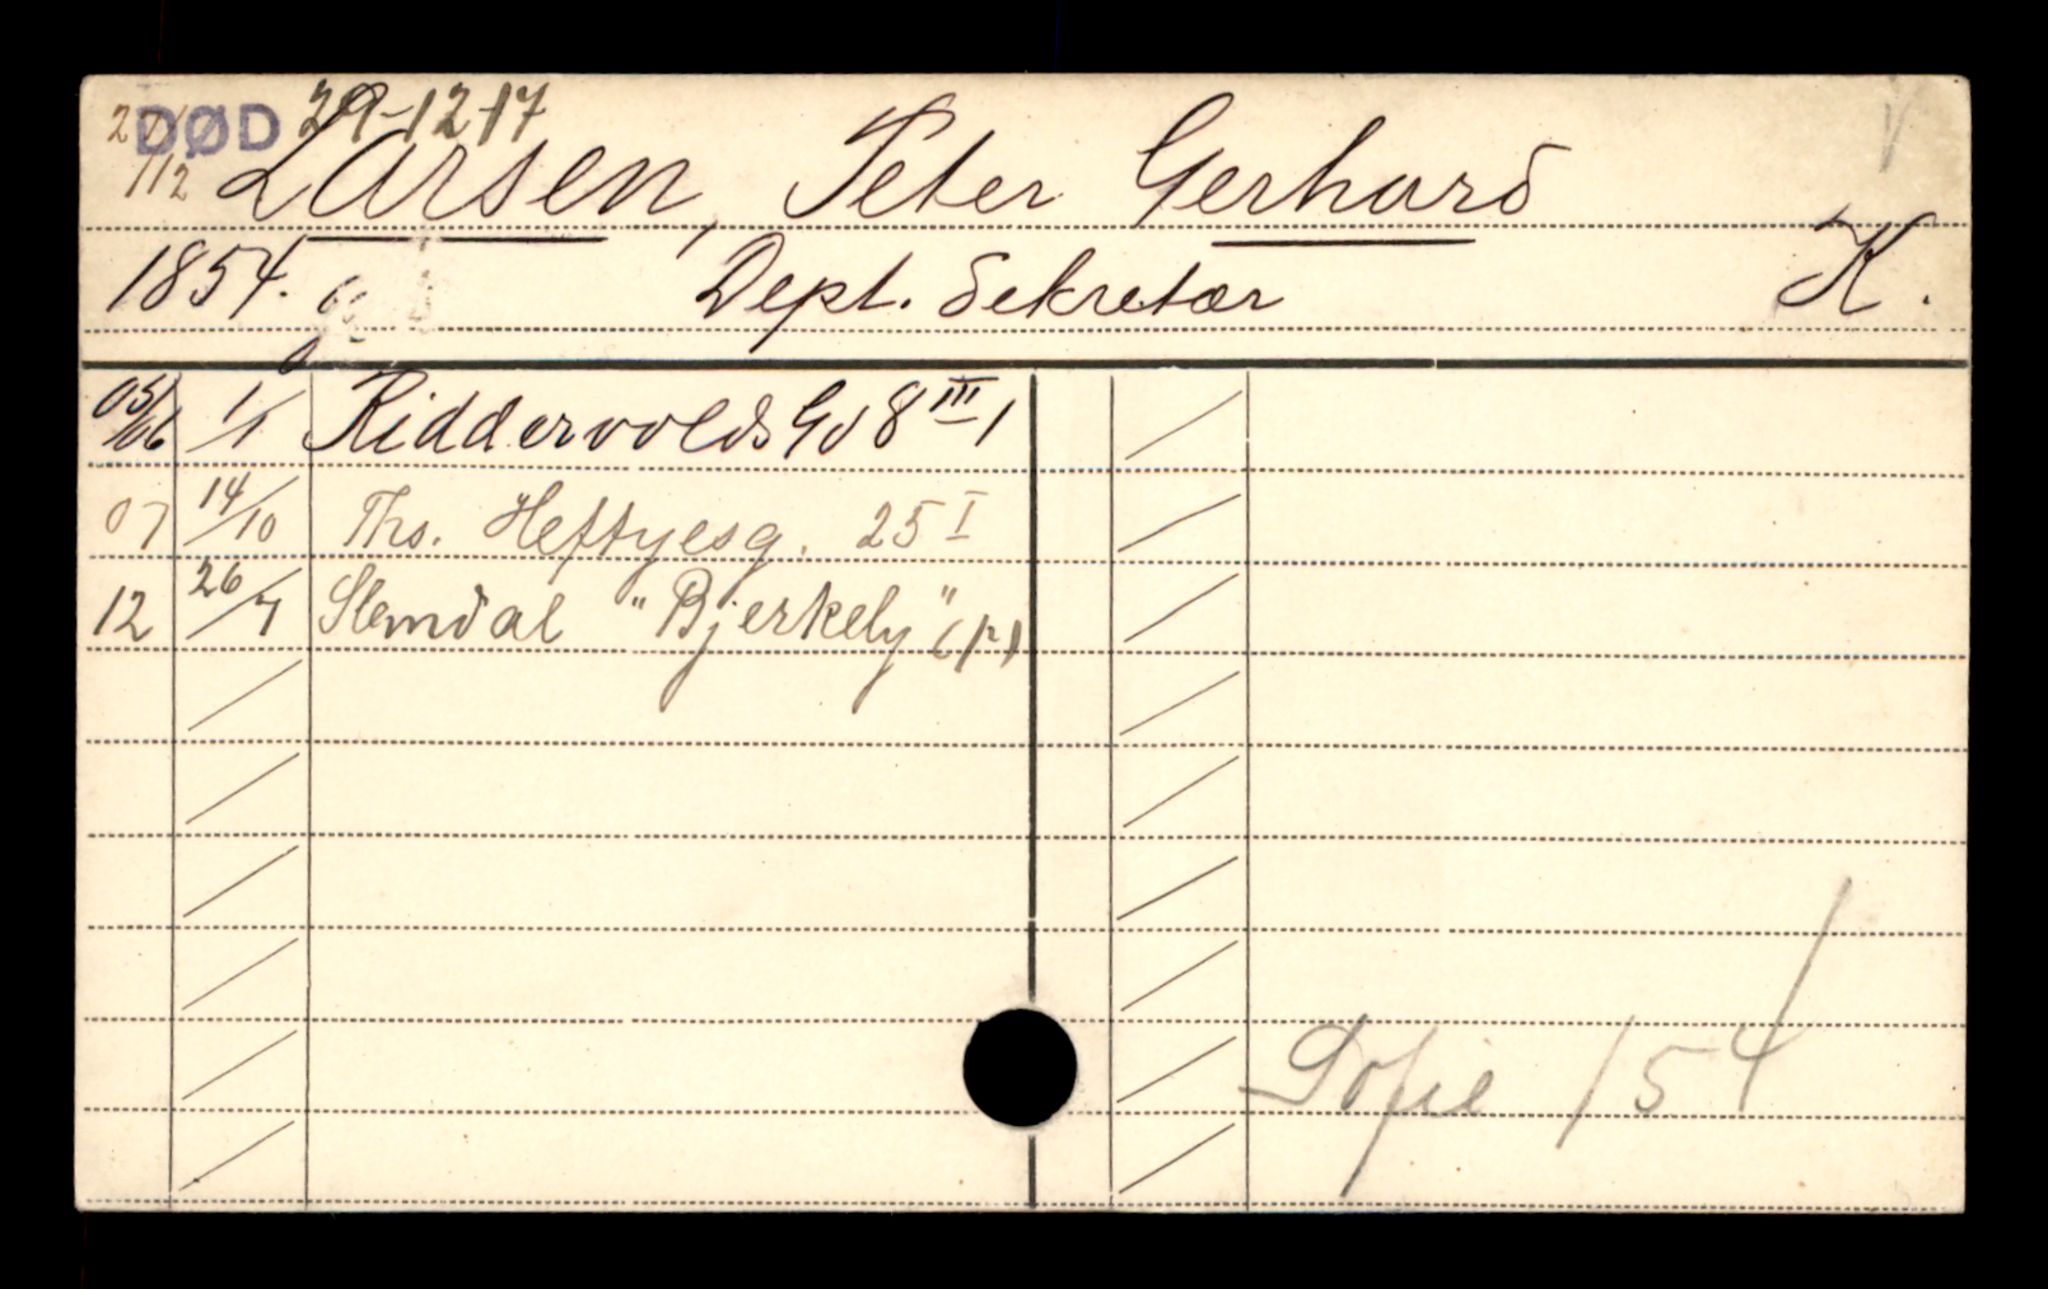 DØD 29-12-17
/12 Larsen, Peter Gerhard
1854. Dept. Sekretær K.
05/06 1/1 Riddervolds Gd 8 III 1
07 14/10 Ths. Heftyesg. 25 I
12 26/7 Slemdal "Bjerkely"
Sofie /54